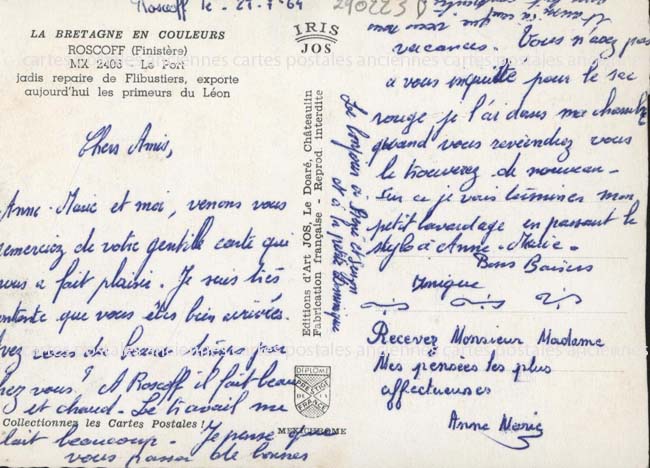 Roscoff le 21-7-64
290223
LA BRETAGNE EN COULEURS
ROSCOFF (Finistère)
MX 2403 - Le Port
jadis repaire de Flibustiers, exporte
aujourd'hui les primeurs du Léon
Chers Amis,
Anne-Marie et moi, venons vous
remercier de votre gentille carte qui
nous a fait plaisir. Je suis très
contente que vous êtes bien arrivées.
Avez vous du beau
chez vous? A Roscoff il fait beau
et chaud. Le travail me
plait beaucoup. Je pense que
vous passer de bonnes
Collectionnez les Cartes Postales !
IRIS
JOS
Editions d'Art JOS, Le Doaré, Châteaulin
Fabrication française - Reprod. interdite
DIPLOME
PRESTIGE
DE LA
FRANCE
MEXICHROME
vacances. Vous n'avez pas
à vous inquiéter pour le sac
rouge je l'ai dans ma chambre
quand vous reviendrez vous
le trouverez de nouveau.
Sur ce je vais terminer mon
petit bavardage en passant le
stylo à Anne-Marie.
Bons Baisers
Le bonjour à
et à la petite Dominique
Recevez Monsieur Madame
Mes pensées les plus
affectueuses
Anne Marie
cartes postales anciennes cartes postales anciennes cartes postales anciennes